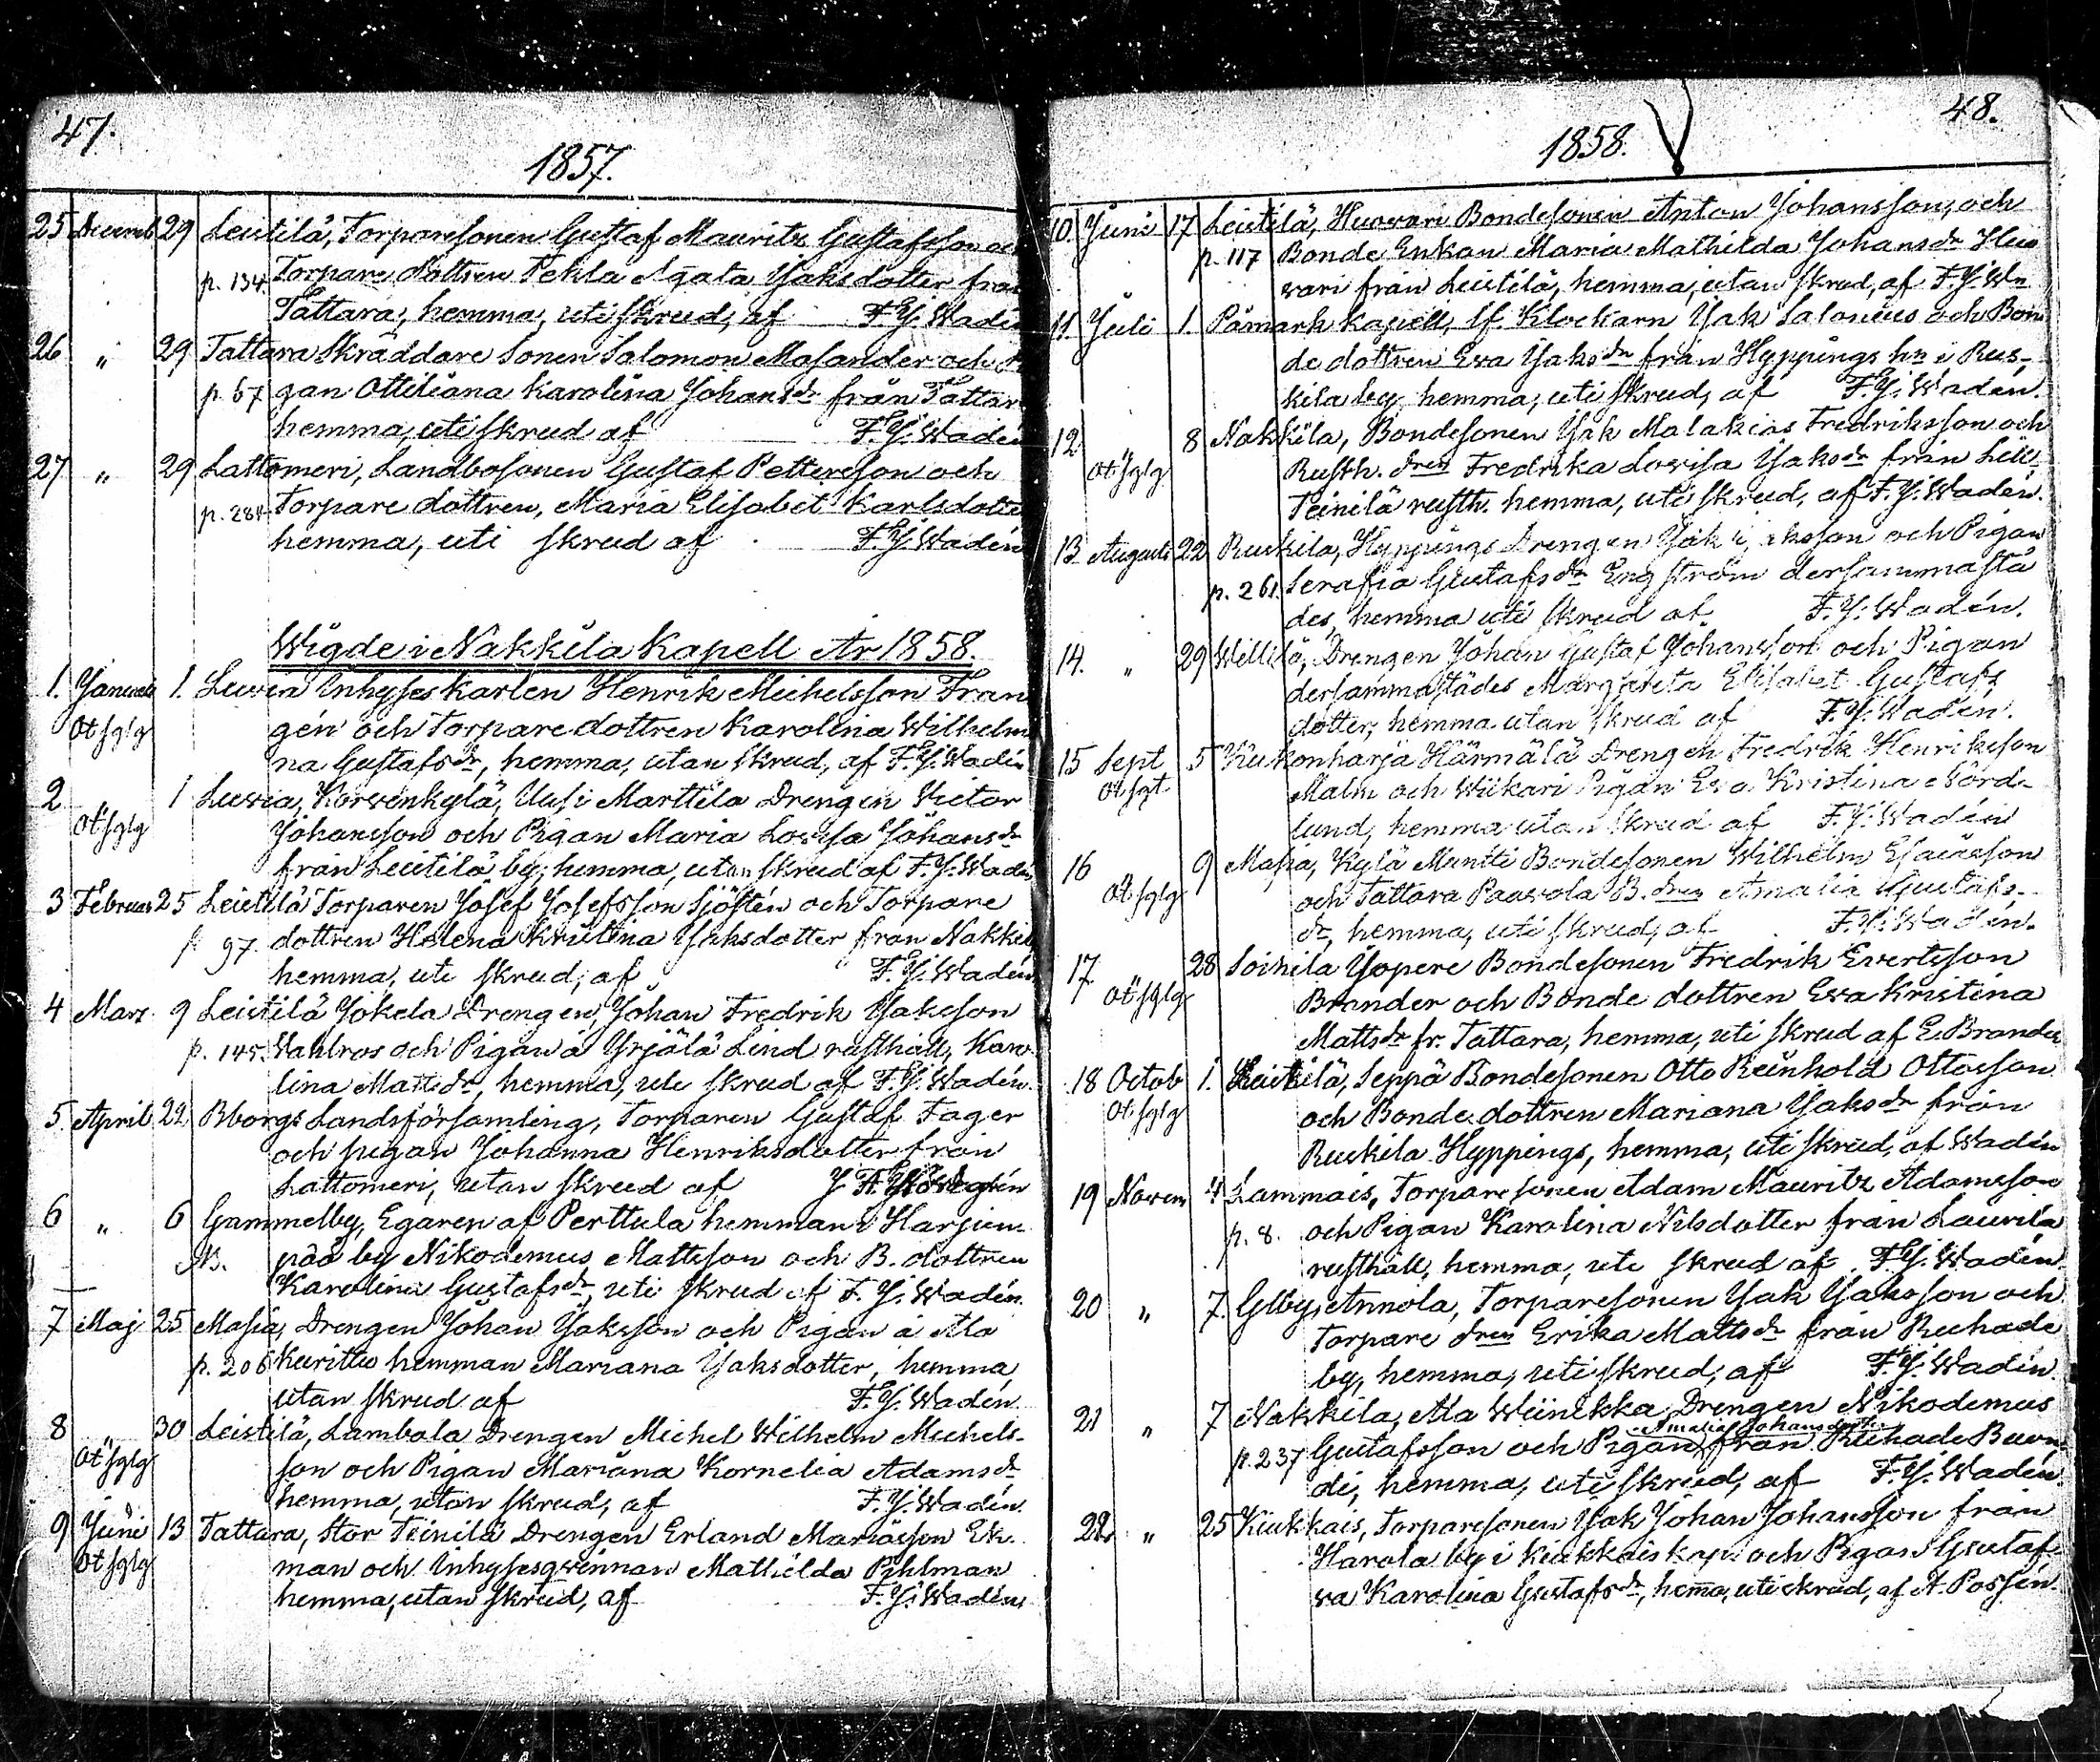 47.
1857.
25 Decemb 29 Leistilä, Torparesonen Gustaf Mauritz Gustafsson
p. 134. Torpare dottren Tekla Agata Jaksdotter
Tattara, hemma, uti skrud, af F. J. Wadén
26 " 29 Tattara Skräddare Sonen Salomon Masander och
p. 67 gan Ottiliana Karolina Johansdr från
hemma, uti skrud af F. J. Wadén
27 " 29 Lattomeri, Landbosonen Gustaf Pettersson och
p. 284. Torpare dottren, Maria Elisabet
hemma, uti skrud af F. J. Wadén
Wigde i Nakkila Kapell År 1858.
1. 1. Luvia Inhyses karlen Henrik Michelsson
Ot sglg gén och Torpare dottren Karolina
na Gustafsdr, hemma, utan skrud, af F. J. Wadén
2 1 Luvia, Korvenkylä, Uusi Marttila Drengen Victor
Ot sglg Johansson och Pigan Maria Lovisa Johansdr
från Leistilä by, hemma, utan skrud af F. J. Wadén
3 Februar 25 Leistilä Torparen Josef Josefsson Sjöstén och Torpare
p 97. dottren Helena Kristina Jaksdotter från
hemma, uti skrud, af F. J. Wadén
4 Mars 9 Leistilä Jokela Drengen, Johan Fredrik Jaksson
p. 145. Wahlros och Pigan å Yrjälä Lind rusthåll, Karo
lina Mattsdr, hemma, uti skrud af F. J. Wadén.
5. April 22 Bborgs Landsförsamling, Torparen Gustaf Fager
och pigan Johanna Henriksdotter från
Lattomeri, utan skrud af
6 " 6 Gammelby, Egaren af Perttula hemman i Harjun
NB. pää by Nikodemus Mattsson och B. dottren
Karolina Gustafsdr, uti skrud af F. J. Wadén.
7 Maj 25 Masia, Drengen Johan Jaksson och Pigan å Ala
p. 206 Kuritto hemman Mariana Jaksdotter, hemma,
utan skrud af F. J. Wadén.
8 " 30 Leistilä, Lambola Drengen Michel Wilhelm Michels-
Ot sglg son och Pigan Mariana Kornelia Adamsdr
hemma, utan skrud, af F. J. Wadén.
9 Juni 13 Tattara, Stor Teinilä Drengen Erland Mariasson Ek-
Ot sglg man och Inhysesqvinnan Mathilda Pihlman
hemma, utan skrud, af F. J. Wadén.
48.
1858.
10. Juni 17 Leistilä, Huovari Bondesonen Anton Johansson, och
p. 117 Bonde Enkan Maria Mathilda Johansdr Huo
vari från Leistilä, hemma, utan skrud, af F. J. Wn
11. Juli 1. Påmark Kapell, Klockarn Jak Salonius och Bon
de dottren Eva Jaksdr från Hyppings hn i Rus-
kila by, hemma, uti skrud, af F. J. Wadén.
12. 8 Nakkila, Bondesonen Jak Malakias Fredriksson och
Ot sglg Rusth. drn Fredrika Lovisa Jaksdr från Lill-
Teinilä rusth. hemma, uti skrud, af F. J. Wadén.
13 Augusti 22 Ruskila, Hyppings Drengen Jak Jaksson och Pigan
p. 261. Serafia Gustafsdr Engström dersammastä
des, hemma uti skrud af F. J. Wadén.
14. " 29 Willilä, Drengen Johan Gustaf Johansson och Pigan
dersammastädes Margareta Elisabet Gustafs
dotter, hemma utan skrud af F. J. Wadén.
15 Sept 5 Kukonharja Härmälä Drengen Fredrik Henriksson
Ot sgt. Malm och Wiikari Pigan Eva Kristina Nord-
lund, hemma utan skrud af F. J. Wadén
16 9 Masia, Kylä Muntti Bondesonen Wilhelm Esaiasson
Ot sglg och Tattara Paavola B. drn Amalia Gustafs-
dr, hemma, uti skrud, af F. J. Wadén.
17. 28 Soinila Jopere Bondesonen Fredrik Evertsson
Ot sglg Brander och Bonde dottren Eva Kristina
Mattsdr fr. Tattara, hemma, uti skrud af E. Brander
18 Octob 1. Leistilä, Seppä Bondesonen Otto Reinhold Ottosson
Ot sglg och Bonde dottren Mariana Jaksdr från
Ruskila Hyppings, hemma, uti skrud, af Wadén
19 Novem 4 Lammais, Torparesonen Adam Mauritz Adamsson
p. 8. och Pigan Karolina Nilsdotter från Laurila
rusthåll, hemma, uti skrud af F. J. Wadén.
20 " 7. Glby, Annola, Torparesonen Jak Jaksson och
Torpare drn Erika Mattsdr från Ruhade
by, hemma, uti skrud, af F. J. Wadén.
21 " 7 Nakkila, Ala Wiinikka Drengen Nikodemus
Amalia Johansdotter
p. 237 Gustafsson och Pigan från Ruhade
di, hemma, uti skrud, af F. J. Wadén.
22 " 25 Kiukkais, Torparesonen Jak Johan Johansson från
Harola by i Kiukkais kap. och Pigan Gustaf
va Karolina Gustafsdr, hema, uti skrud, af A. Possén.